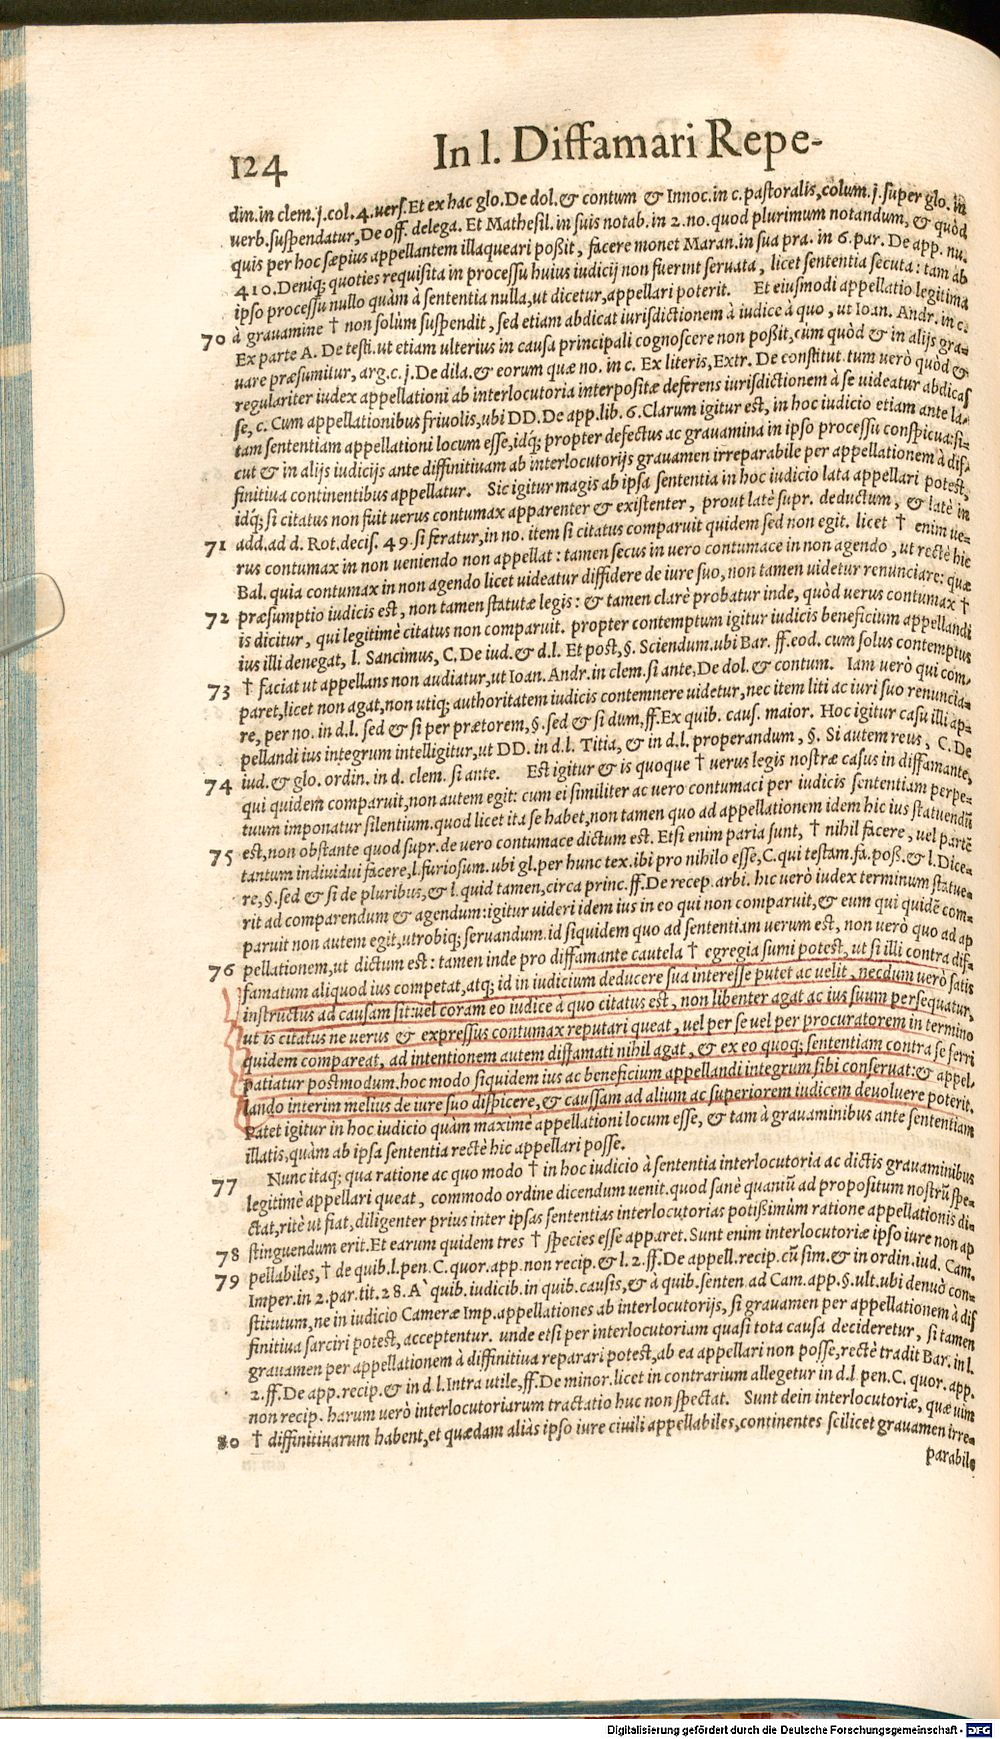 124
In l. Diffamari Repe-
din.in clem.j.col.4.vers.Et ex hac glo.De dol.& contum & Innoc.in c.pastoralis,colum.j.super glo.in
verb.suspendatur,De off.delega. Et Mathesil.in suis notab.in 2.no.quod plurimum notandum, & quòd
quis per hoc sæpius appellantem illaqueari poßit, facere monet Maran.in sua pra. in 6.par. De app. nu.
410.Deniq; quoties requisita in processu huius iudicij non fuerint servata, licet sententia secuta: tam ab
ipso processu nullo quàm à sententia nulla,ut dicetur,appellari poterit. Et eiusmodi appellatio legitima
70 à gravamine † non solùm suspendit, sed etiam abdicat iurisdictionem à iudice à quo, ut Ioan. Andr. in c.
Ex parte A. De testi.ut etiam ulterius in causa principali cognoscere non poßit,cùm quòd & in alijs gra-
vare præsumitur, arg.c.j.De dila.& eorum quæ no. in c. Ex literis,Extr. De constitut.tum verò quòd &
regulariter iudex appellationi ab interlocutoria interpositæ deferens iurisdictionem à se videatur abdicas
se, c. Cum appellationibus frivolis,ubi DD.De app.lib. 6.Clarum igitur est, in hoc iudicio etiam ante la-
tam sententiam appellationi locum esse,idq; propter defectus ac gravamina in ipso processu conspicua:si-
cut & in alijs iudicijs ante diffinitivam ab interlocutorijs gravamen irreparabile per appellationem à dif-
finitiva continentibus appellatur. Sic igitur magis ab ipsa sententia in hoc iudicio lata appellari potest,
idq; si citatus non fuit verus contumax apparenter & existenter, prout latè supr. deductum, & latè in
add.ad d. Rot.decis. 49.si feratur,in no. item si citatus comparuit quidem sed non egit. licet † enim ve-
71 rus contumax in non veniendo non appellat: tamen secus in vero contumace in non agendo, ut rectè hic
Bal. quia contumax in non agendo licet videatur diffidere de iure suo,non tamen videtur renunciare: quæ
72 præsumptio iudicis est, non tamen statutæ legis: & tamen clarè probatur inde, quòd verus contumax †
is dicitur, qui legitimè citatus non comparuit. propter contemptum igitur iudicis beneficium appellandi
ius illi denegat, l. Sancimus, C.De iud.& d.l. Et post,§. Sciendum.ubi Bar. ff.eod. cum solus contemptus
73 † faciat ut appellans non audiatur,ut Ioan.Andr.in clem.si ante,De dol.& contum. Iam verò qui com-
paret,licet non agat,non utiq; authoritatem iudicis contemnere videtur,nec item liti ac iuri suo renuncia-
re, per no. in d.l. sed & si per prætorem,§.sed & si dum,ff.Ex quib. caus. maior. Hoc igitur casu illi ap-
pellandi ius integrum intelligitur,ut DD. in d.l. Titia, & in d.l. properandum, §. Si autem reus, C. De
74 iud.& glo. ordin. in d. clem. si ante. Est igitur & is quoque † verus legis nostræ casus in diffamante,
qui quidem comparuit,non autem egit: cum ei similiter ac vero contumaci per iudicis sententiam perpe-
tuum imponatur silentium.quod licet ita se habet,non tamen quo ad appellationem idem hic ius statuendū
est,non obstante quod supr.de vero contumace dictum est. Etsi enim paria sunt, † nihil facere, vel partē
75 tantum individui facere,l.furiosum.ubi gl.per hunc tex.ibi pro nihilo esse,C.qui testam.fa.poß.& l.Dice-
re,§.sed & si de pluribus,& l.quid tamen,circa princ.ff.De recep.arbi. hic verò iudex terminum statue-
rit ad comparendum & agendum:igitur videri idem ius in eo qui non comparuit,& eum qui quidē com-
paruit non autem egit,utrobiq; servandum.id siquidem quo ad sententiam verum est, non verò quo ad ap
76 pellationem,ut dictum est: tamen inde pro diffamante cautela † egregia sumi potest, ut si illi contra dif-
famatum aliquod ius competat,atq; id in iudicium deducere sua interesse putet ac velit, necdum verò satis
instructus ad causam sit:vel coram eo iudice à quo citatus est, non libenter agat ac ius suum persequatur,
ut is citatus ne verus & expressus contumax reputari queat, vel per se vel per procuratorem in termino
quidem compareat, ad intentionem autem diffamati nihil agat, & ex eo quoq; sententiam contra se ferri
patiatur postmodum.hoc modo siquidem ius ac beneficium appellandi integrum sibi conservat:& appel-
lando interim melius de iure suo dispicere,& caussam ad alium ac superiorem iudicem devoluere poterit.
Patet igitur in hoc iudicio quàm maximè appellationi locum esse, & tam à gravaminibus ante sententiam
illatis,quàm ab ipsa sententia rectè hic appellari posse.
77 Nunc itaq; qua ratione ac quo modo † in hoc iudicio à sententia interlocutoria ac dictis gravaminibus
legitimè appellari queat, commodo ordine dicendum venit.quod sanè quantū ad propositum nostrū spe-
ctat,ritè ut fiat,diligenter prius inter ipsas sententias interlocutorias potißimùm ratione appellationis di-
stinguendum erit.Et earum quidem tres † species esse apparet.Sunt enim interlocutoriæ ipso iure non ap
78 pellabiles,† de quib.l.pen.C.quor.app.non recip.& l.2.ff.De appell.recip.cū sim.& in ordin.iud. Cam.
79 Imper.in 2.par.tit.28.A` quib.iudicib.in quib.causis,& à quib.senten.ad Cam.app.§.ult.ubi denuò con-
stitutum,ne in iudicio Cameræ Imp.appellationes ab interlocutorijs, si gravamen per appellationem à dif
finitiva sarciri potest, acceptentur. unde etsi per interlocutoriam quasi tota causa decideretur, si tamen
gravamen per appellationem à diffinitiva reparari potest,ab ea appellari non posse,rectè tradit Bar. in l.
2.ff.De app.recip.& in d l.Intra utile,ff.De minor.licet in contrarium allegetur in d.l.pen.C. quor.app.
non recip. harum verò interlocutoriarum tractatio huc non spectat. Sunt dein interlocutoriæ, quæ vim
80 † diffinitivarum habent,et quædam aliàs ipso iure civili appellabiles,continentes scilicet gravamen irre-
parabile
Digitalisierung gefördert durch die Deutsche Forschungsgemeinschaft - DFG